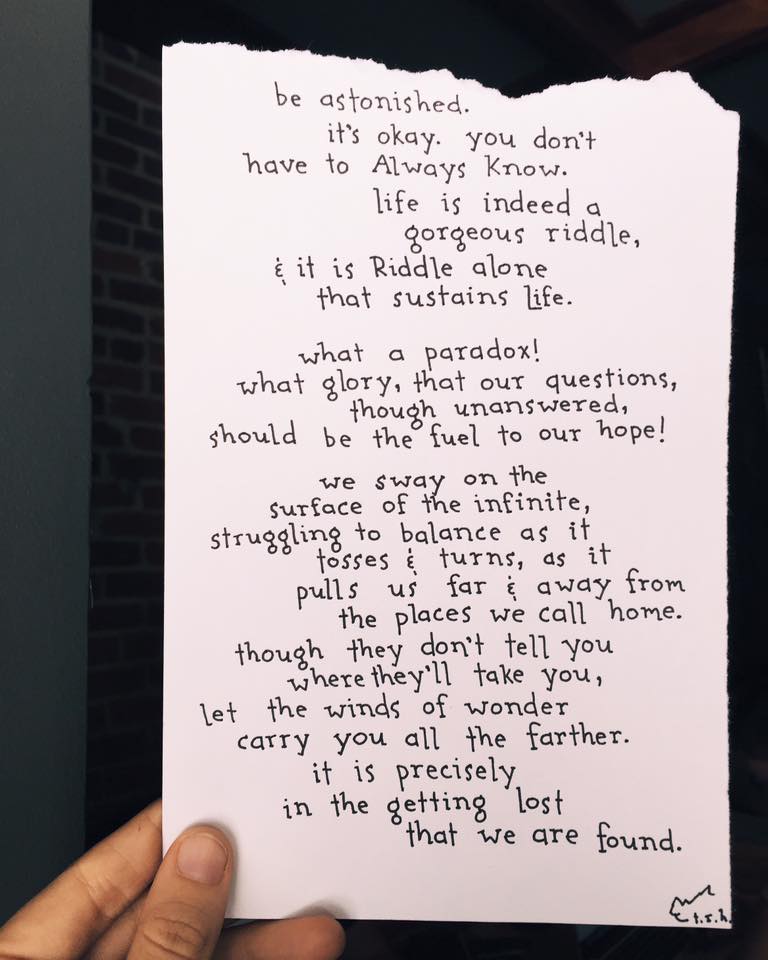 be astonished.
it's okay. you don't
have to Always Know.
life is indeed a
gorgeous riddle,
& it is Riddle alone
that sustains life.
what a paradox!
what glory, that our questions,
though unanswered,
should be the fuel to our hope!
we sway on the
surface of the infinite,
struggling to balance as it
tosses & turns, as it
pulls us far & away from
the places we call home.
though they don't tell you
where they'll take you,
let the winds of wonder
carry you all the farther.
it is precisely
in the getting lost
that we are found.
t.s.h.